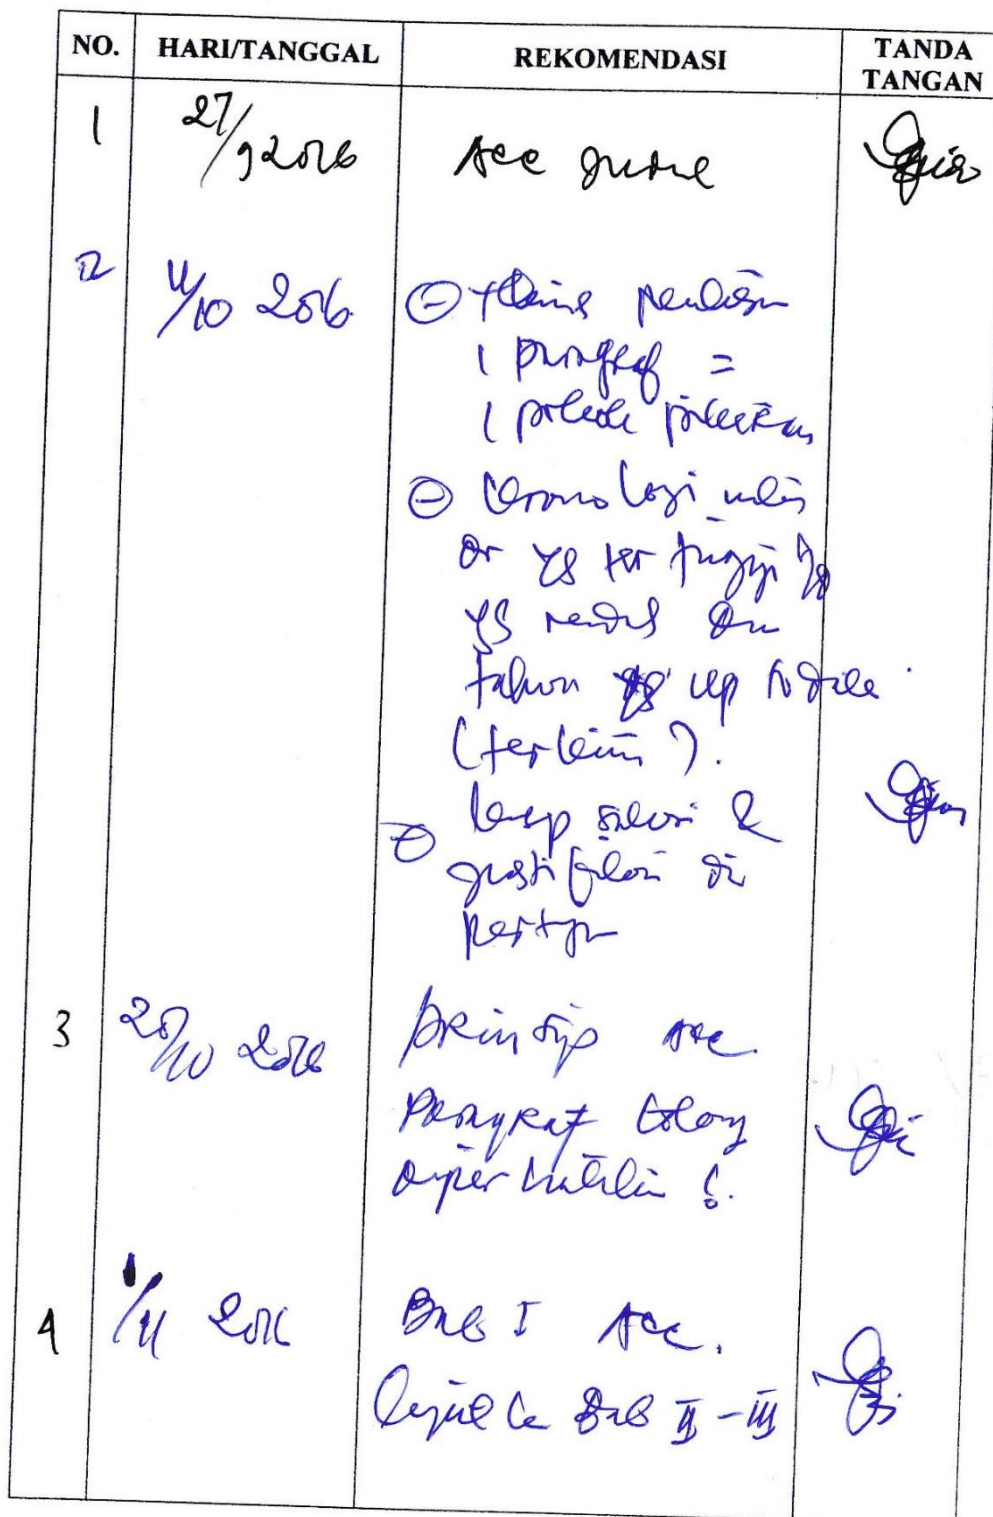 NO. HARI/TANGGAL REKOMENDASI TANDA TANGAN
1 27/9 2016 Acc Judul
2 11/10 2016 penulisan
1 paragraf =
1 pokok pikiran
kronologi
dr yg tertinggi
yg rendah
tahun yg up to date
(terkini).
&
justifikasi di
3 20/10 2016 prinsip acc
Paragraf tolong
diperbaiki
4 1/11 2016 Bab I Acc.
lanjut ke Bab II - III